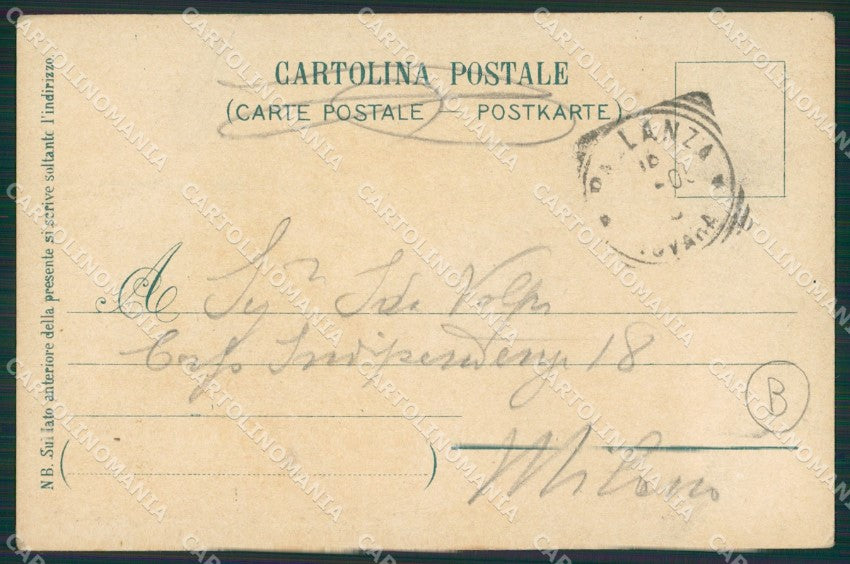 CARTOLINA POSTALE
(CARTE POSTALE — POSTKARTE)
PALLANZA
NOVARA
A Sigr Ida Volpi
Corso Indipendenza 18
Milano
B
NB. Sul lato anteriore della presente si scrive soltanto l'indirizzo.
CARTOLINOMANIA